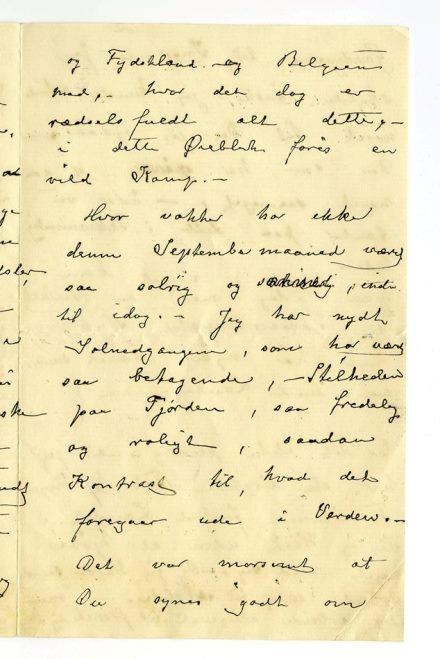 og Tydskland og Belgien
med, - hvor det dog er
rædselsfuldt alt dette, -
i dette Øieblik føres en
vild Kamp. -
Hvor vakker har ikke
denne September maaned været
saa solrig og , indtil
til idag. - Jeg har nydt
Solnedgangene, som har været
saa betagende, - Stilheden
paa Fjorden, saa fredelig
og roligt, saadan
Kontrast til, hvad det
foregaar ude i Verden. -
Det var morsomt at
Du synes godt om